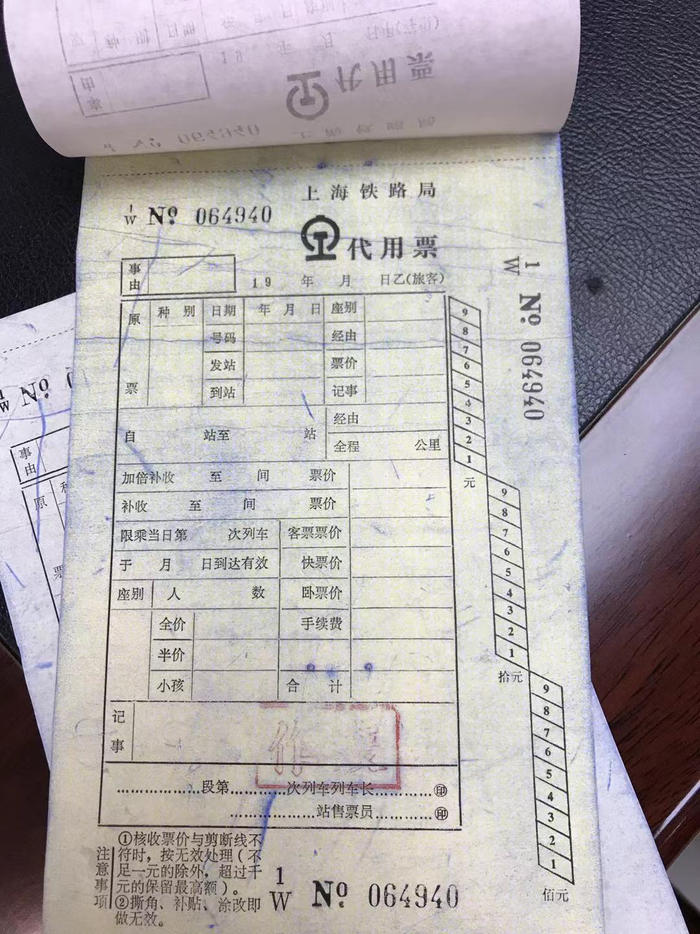 上海铁路局
1/W No 064940
代用票
事由
19 年 月 日乙(旅客)
原票 种别 日期 年月日 座别
号码 经由
发站 票价
到站 记事
自 站至 站 经由
全程 公里
加倍补收 至 间 票价
补收 至 间 票价
限乘当日第 次列车 客票票价
于 月 日到达有效 快票价
座别 人数 卧票价
全价 手续费
半价
小孩 合计
记事
..............段第..........次列车列车长..........印
....................站售票员..........印
注意事项
①核收票价与剪断线不
符时,按无效处理(不
足一元的除外,超过千
元的保留最高额)。
②撕角、补贴、涂改即
做无效。
1/W No 064940
1/W No 064940
9
8
7
6
5
4
3
2
1
元
9
8
7
6
5
4
3
2
1
拾元
9
8
7
6
5
4
3
2
1
佰元
W No
事由
原
票